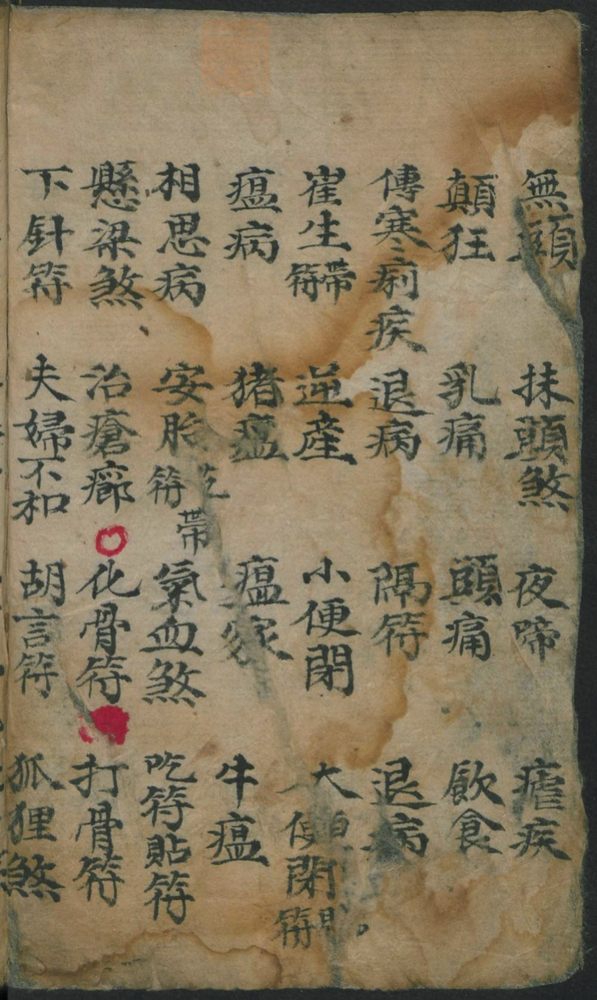 無頭 抹頭煞 夜啼 瘧疾
顛狂 乳痛 頭痛 飲食
傳寒〻痢疾 退病 隔符 退病
崔生符帶 逆產 小便閉 大便閉符
瘟病 猪瘟 瘟 牛瘟
相思病 安胎符 帶 氣血煞 吃符貼符
懸梁煞 治瘡癤 化骨符 打骨符
下針符 夫婦不和 胡言符 狐狸煞